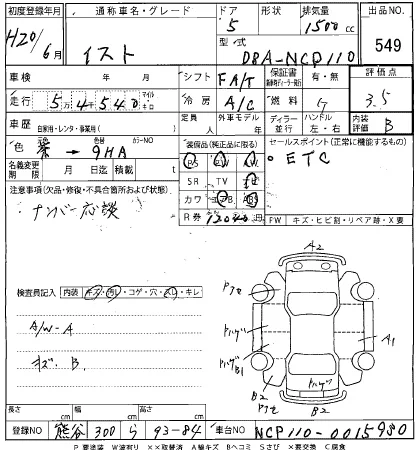 初度登録年月 通称車名・グレード ドア 形状 排気量 出品NO
H20/6月 イスト 5 1500cc 549
型・式 DBA-NCP110
車検 年 月 シフト FA/T 保証書 有・無 評価点
走行 5万4540 マイル キロ 冷房 A/C 燃料 G 3.5
車歴 自家用・レンタ・事業用( ) 定員 人 外車モデル ディーラー 並行 ハンドル 左・右 内装評価 B
色 紫→9HA 色替 カラーNO 装備品(純正品に限る) セールスポイント(正常に機能するもの)
名義変更期限 月 日迄 積載 t PS AW PW ・ETC
注意事項(欠品・修復・不具合箇所および状態) SR TV
ナンバー応談 カワ エアB ABS
R券 12040円 FW キズ・ヒビ割・リペア跡・X要
検査員記入 内装 キズ・汚れ・コゲ・穴・スレ・キレ
A/W-A
キズ.B.
A2
Pアセ
Pハゲ
Pハゲ B1
A1
B2 Pアセ
Pハゲ
B2
長さ cm 幅 cm 高さ cm
登録NO 熊谷 300 ら 93-84 車台NO NCP110-0015980
P要塗装 W波有り ××取替済 A線キズ Bヘコミ Sさび ×要交換 C腐食